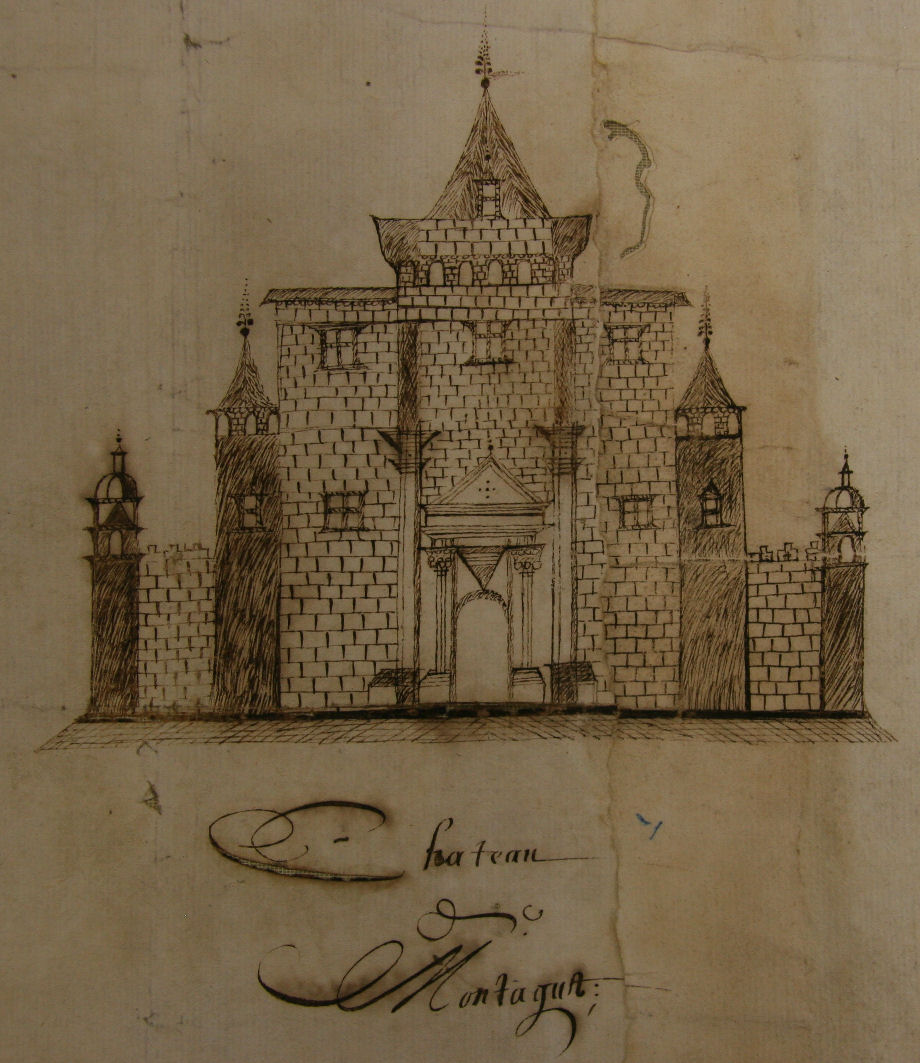 Chateau
de
Montagut: